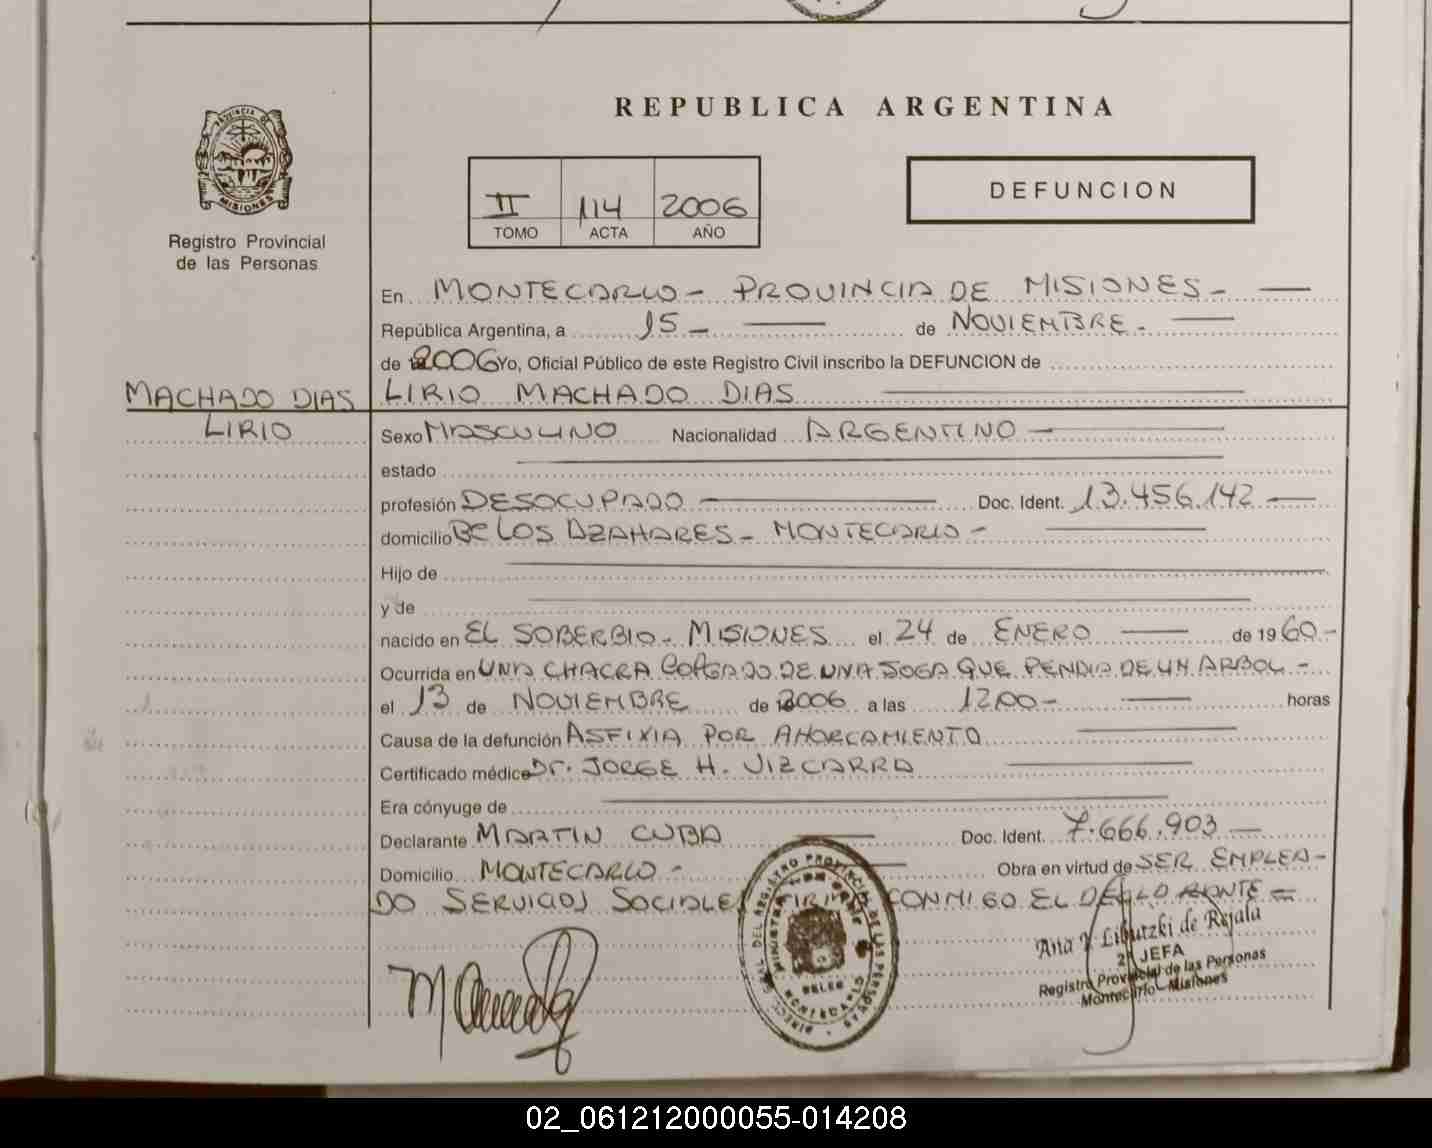 PROVINCIA DE
MISIONES
Registro Provincial
de las Personas
REPUBLICA ARGENTINA
II 114 2006
TOMO ACTA AÑO
DEFUNCION
En MONTECARLO - PROVINCIA DE MISIONES -
República Argentina, a 15 - de NOVIEMBRE -
de 2006 Yo, Oficial Público de este Registro Civil inscribo la DEFUNCION de
MACHADO DIAS LIRIO MACHADO DIAS
LIRIO Sexo MASCULINO Nacionalidad ARGENTINO -
estado
profesión DESOCUPADO Doc. Ident. 13.456.142
domicilio Bº LOS AZAHARES - MONTECARLO -
Hijo de
y de
nacido en EL SOBERBIO - MISIONES el 24 de ENERO de 1960 -
Ocurrida en UNA CHACRA COLGADO DE UNA SOGA QUE PENDIA DE UN ARBOL -
el 13 de NOVIEMBRE de 2006 a las 12,00 - horas
Causa de la defunción ASFIXIA POR AHORCAMIENTO
Certificado médico Dr. JORGE H. VIZCARRA
Era cónyuge de
Declarante MARTIN CUBA Doc. Ident. 7.666.903
Domicilio MONTECARLO - Obra en virtud de SER EMPLEA-
DO SERVICIOS SOCIALES CONMIGO EL
Ana Y. Libutzki de Rejala
2ª JEFA
Registro Provincial de las Personas
Montecarlo - Misiones
02_061212000055-014208